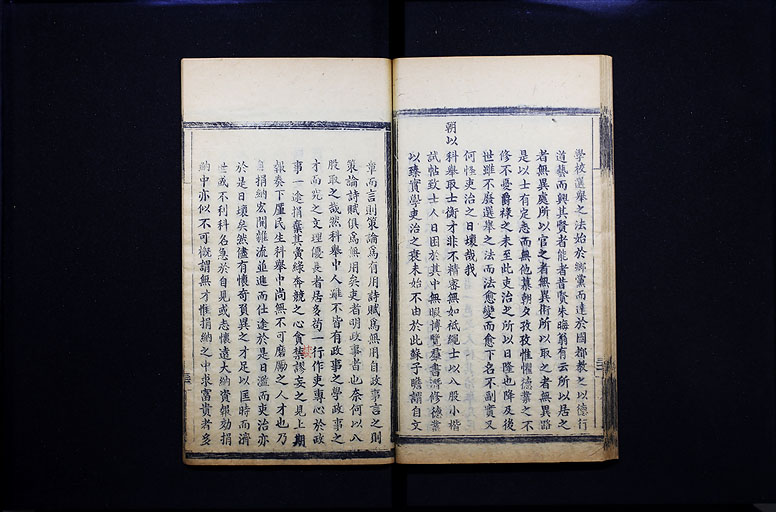 學校選舉之法始於鄉黨而達於國都教之以德行
道藝而興其賢者能者昔賢朱晦翁有云所以居之
者無異處所以官之者無異術所以取之者無異路
是以士有定志而無他慕朝夕孜孜惟懼德業之不
修不憂爵祿之未至此吏治之所以日隆也降及後
世雖不廢選舉之法而法愈變而愈下名不副實又
何怪吏治之日壞哉我
朝以科舉取士衡才非不精審無如袛繩士以八股小楷
試帖致士人日困於其中無暇博覽羣書潛修德業
以臻實學吏治之衰未始不由於此蘇子瞻謂自文
章而言則策論為有用詩賦為無用自政事言之則
策論詩賦俱為無用矣吏者明政事者也奈何以八
股取之哉然科舉中人雖不皆有政事之學政事之
才而究之文理優長者居多苟一行作吏專心於政
事一途捐棄其夤緣奔競之心貪禁謬妄之見上期
報奏下厪民生科舉中尚無不可磨厲之人才也乃
自捐納宏開雜流並進而仕途於是日濫而吏治亦
於是日壞矣然儘有懷奇負異之才足以匡時而濟
世或不利科名急於自見或志懷遠大納資報効捐
納中亦似不可概謂無才惟捐納之中求富貴者多